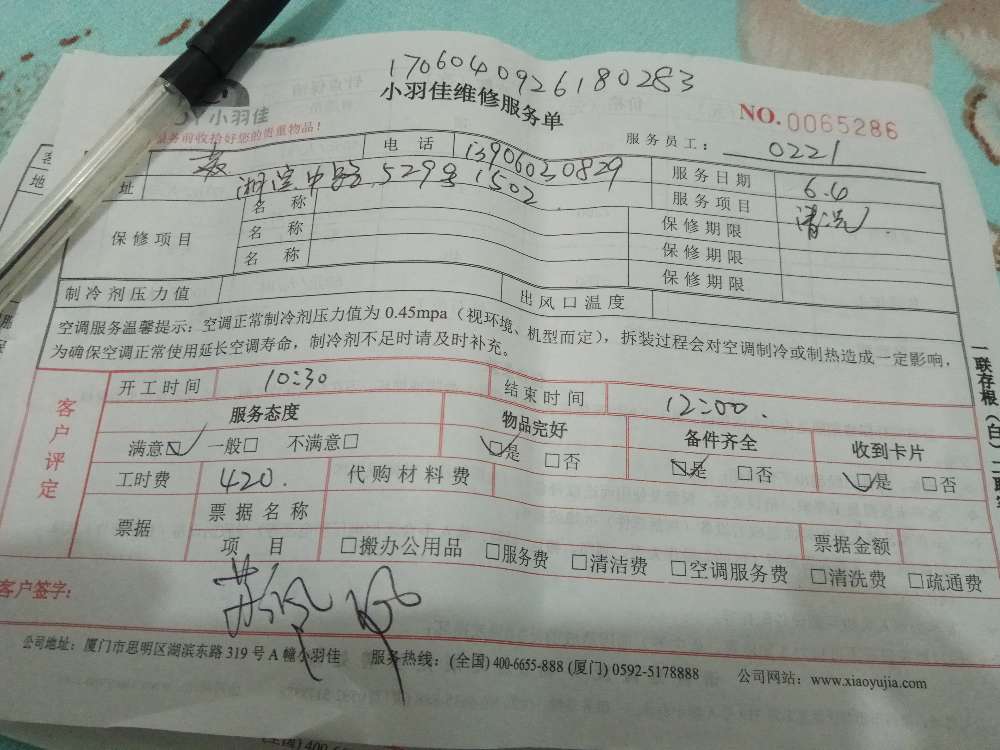 1706040926180283
小羽佳维修服务单
小羽佳
NO.0065286
服务前收拾好您的贵重物品！
服务员工： 0221
电话 13906030829 服务日期 6.4
址 湖滨中路529号1502 服务项目 清洗
保修项目 名称 保修期限
名称 保修期限
名称 保修期限
制冷剂压力值 出风口温度
空调服务温馨提示：空调正常制冷剂压力值为 0.45mpa（视环境、机型而定），拆装过程会对空调制冷或制热造成一定影响，
为确保空调正常使用延长空调寿命，制冷剂不足时请及时补充。
客户评定
开工时间 10:30 结束时间 12:00.
服务态度 物品完好 备件齐全 收到卡片
满意☑ 一般□ 不满意□ ☑是 □否 ☑是 □否 ☑是 □否
工时费 420. 代购材料费
票据 票据名称 票据金额
项目 □搬办公用品 □服务费 □清洁费 □空调服务费 □清洗费 □疏通费
客户签字：
公司地址：厦门市思明区湖滨东路 319 号 A 幢小羽佳 服务热线：(全国) 400-6655-888 (厦门) 0592-5178888 公司网站：www.xiaoyujia.com
一联存根（白）二联